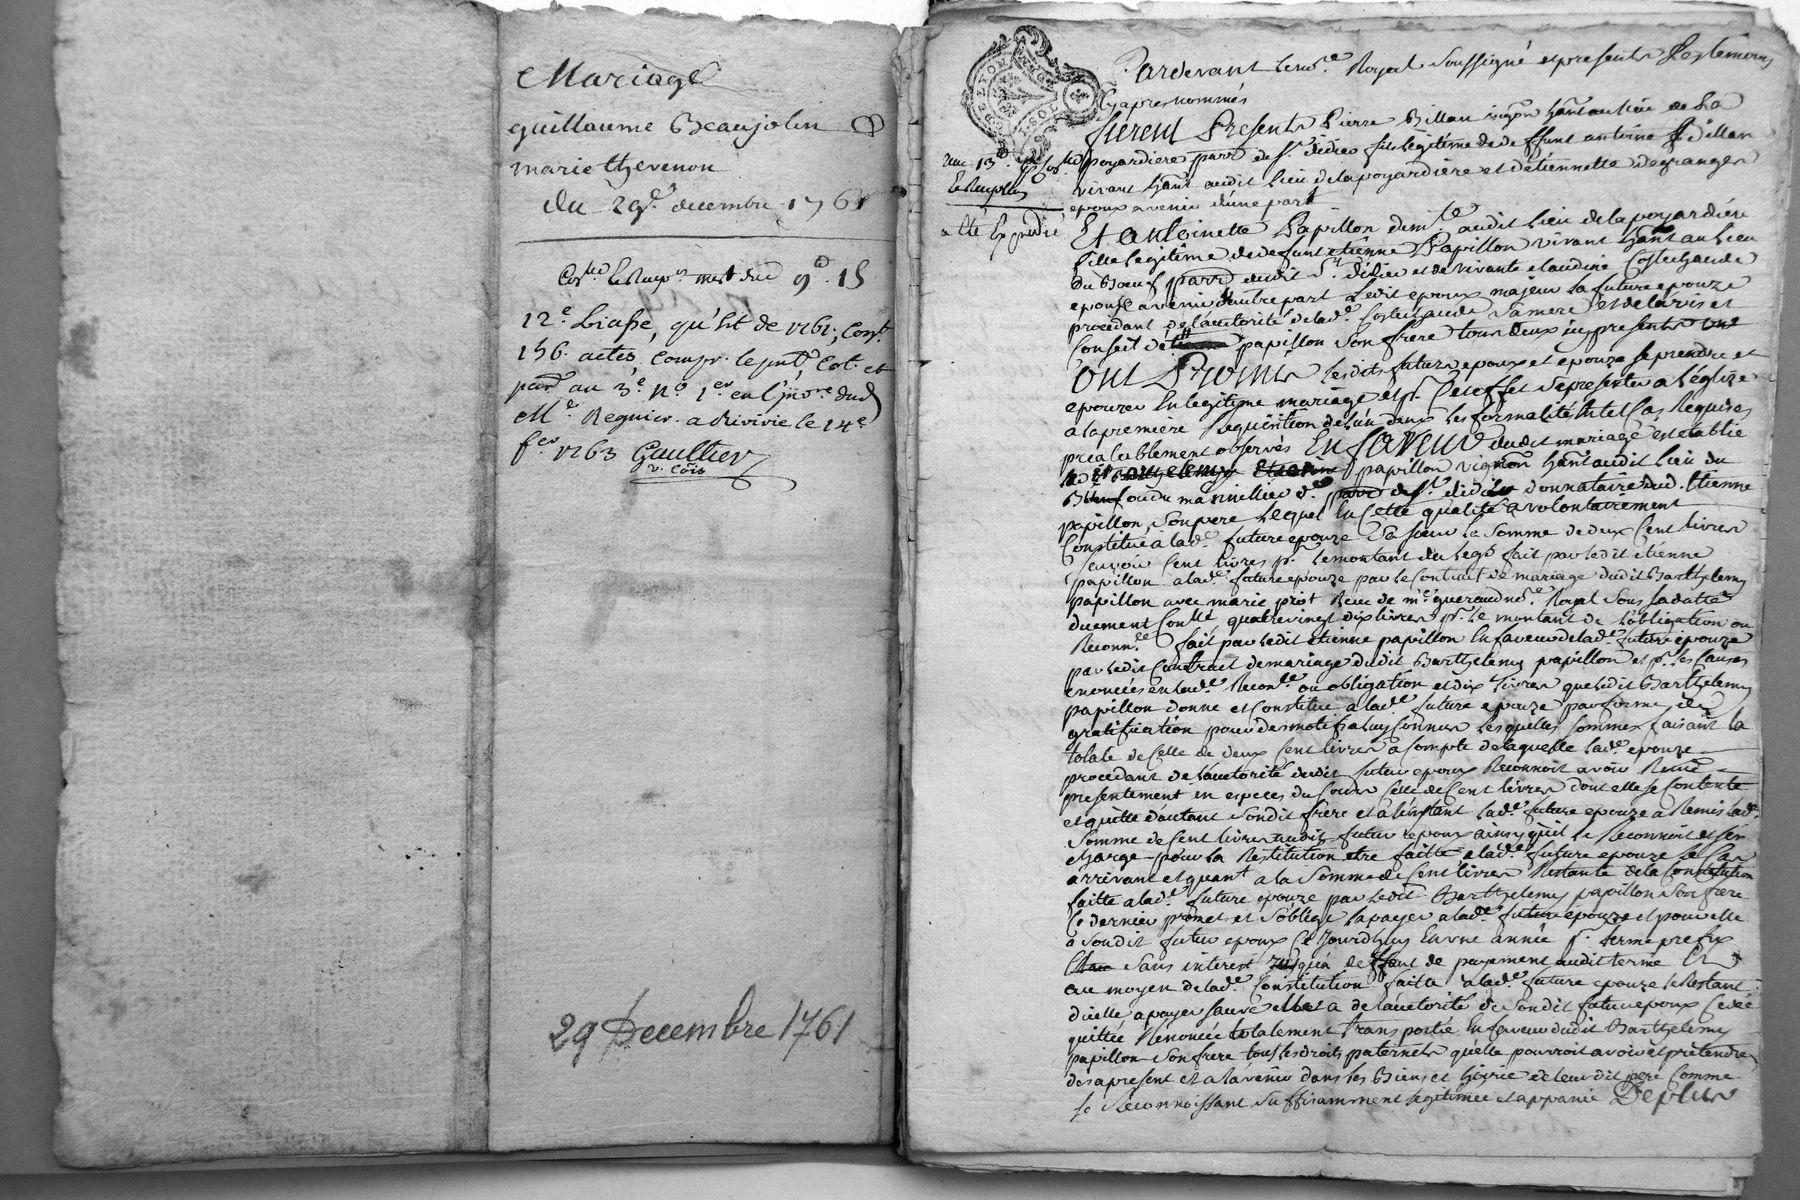 Mariage
guillaume Beaujolin &
marie thevenon
du 29e. decembre 1761
12e. Liasse, qu'est de 1761; Cont.
156. actes, Compr. le pnt. Cot. et
par. au 3e. No. 1er. en l'inv.re dud
Me. Regnier. a Rivirie le 14e
fer. 1763 Gaultier
v. Cõis
29 Decembre 1761
GDE LYON
Pardevant Le no.re Royal Soussigné et presents Les temoins
Cy apres nommés
furent Presents Pierre Billan vigñ hañt au lieu de La
poyardiere parr de St. didier fils légitime de deffunt antoine Billan
vivant hañt audit lieu de la poyardière et d'étiennette degranges
epoux avenir d'une part
a Eté Expedié
Et antoinette Papillon dem.te audit lieu de la poyardiére
fille legitime de defunt etienne Papillon vivant hañt au lieu
du Boeuf parr dudit St. didier et de vivante claudine Costechaude
epouse avenir d'autre part Ledit epoux majeur la future epouze
procedant de l'autorité de lad.e Costechaude sa mere et de l'avis et
Conseil de papillon son frere tous deux icy presents
ont Promis lesdits futurs epoux et epouze se prendre et
epouzer En legitime mariage et pr. Cet effet se presenter a l'église
a la premiere Requisition de l'un deux les formalités En tel Cas Requises
prealablement observés En faveur dudit mariage est etablie
papillon vigñon hañt audit lieu du
parr de St. didier donnataire dud. Etienne
papillon son pere Lequel En Cette qualité a volontairement
Constitué a lad.e future epouze sa soeur la somme de deux Cent livres
savoir Cent livres pr. le montant du legs fait par ledit etienne
papillon a lad.e future epouze par le Contrat de mariage dudit Barthelemy
papillon avec marie priot Recu de me. gueraud no.re Royal sous sa datte
duement Conllé quatrevingt dix livres pr. le montant de l'obligation ou
Reconn.ce fait par ledit etienne papillon En faveur de lad.e future epouze
par ledit Contrait de mariage dudit Barthelemy papillon et pr. les Causes
enoncées en lad.e Recon.ce ou obligation et dix livres que ledit Barthelemy
papillon donne et Constitue a lad.e future epouze par forme de
gratification pour des motifs a luy Connus lesquelles sommes faisant la
totale de Celle de deux Cent livres a Compte de laquelle lad.e epouze
procedant de l'autorité dudit futur epoux Reconnoit avoir Receu
presentement en especes du Cours Celle de Cent livres dont elle se Contente
et quitte d'autant son dit frere et a l'instant lad.e future epouze a Remis lad.e
somme de Cent livres audit futur epoux ainsy qu'il le Reconnoit et s'en
charge pour la Restitution etre faitte a lad.e future epouze le Cas
arrivant et quant a la somme de Cent livres Restante de la Constitution
faitte a lad.e future epouze par ledit Barthelemy papillon son frere
Ce dernier promet et s'oblige la payer a lad.e future epouze et pour elle
a son dit futur epoux Ce jourdhuy En une année pr. terme prefix
sans interest jusqua defaut de payement audit terme En
au moyen de lad.e Constitution faitte a lad.e future epouze le Restant
d'icelle a payer sauve elle a de l'autorité de son dit futur epoux Cedé
quittée Renoncée totalement transportée En faveur dudit Barthelemy
papillon son frere tous les droits paternels qu'elle pourroit avoir et pretendre
des apresent et a l'avenir dans les Biens et hoirie de leur dit pere Comme
se Reconnoissant suffisamment legitimée et appanée De plus